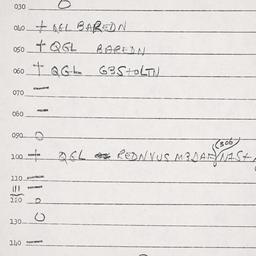 030 O
040 + QGL BAREDN
050 + QGL BAREDN
060 + QGL G35+OLTN
070 —
080 —
090 O
100 + QGL REDNVUS M3DAF
110 —
120 O
130 O
140 —